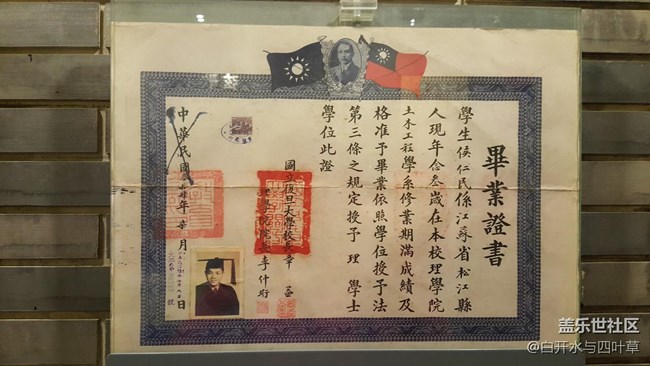 畢業證書
學生侯仁民係江蘇省松江縣
人現年念叁歲在本校理學院
土木工程學系修業期滿成績及
格准予畢業依照學位授予法
第三條之規定授予理學士
學位此證
國立復旦大學校長章益
理學院院長李仲珩
中華民國年月日
號
盖乐世社区
@白开水与四叶草